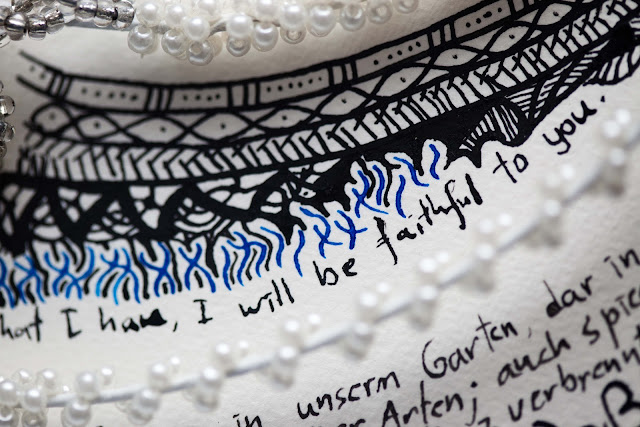 hat I have, I will be faithful to you.
in unserm Garten, dar in
er Arten; auch spie
verbrennt